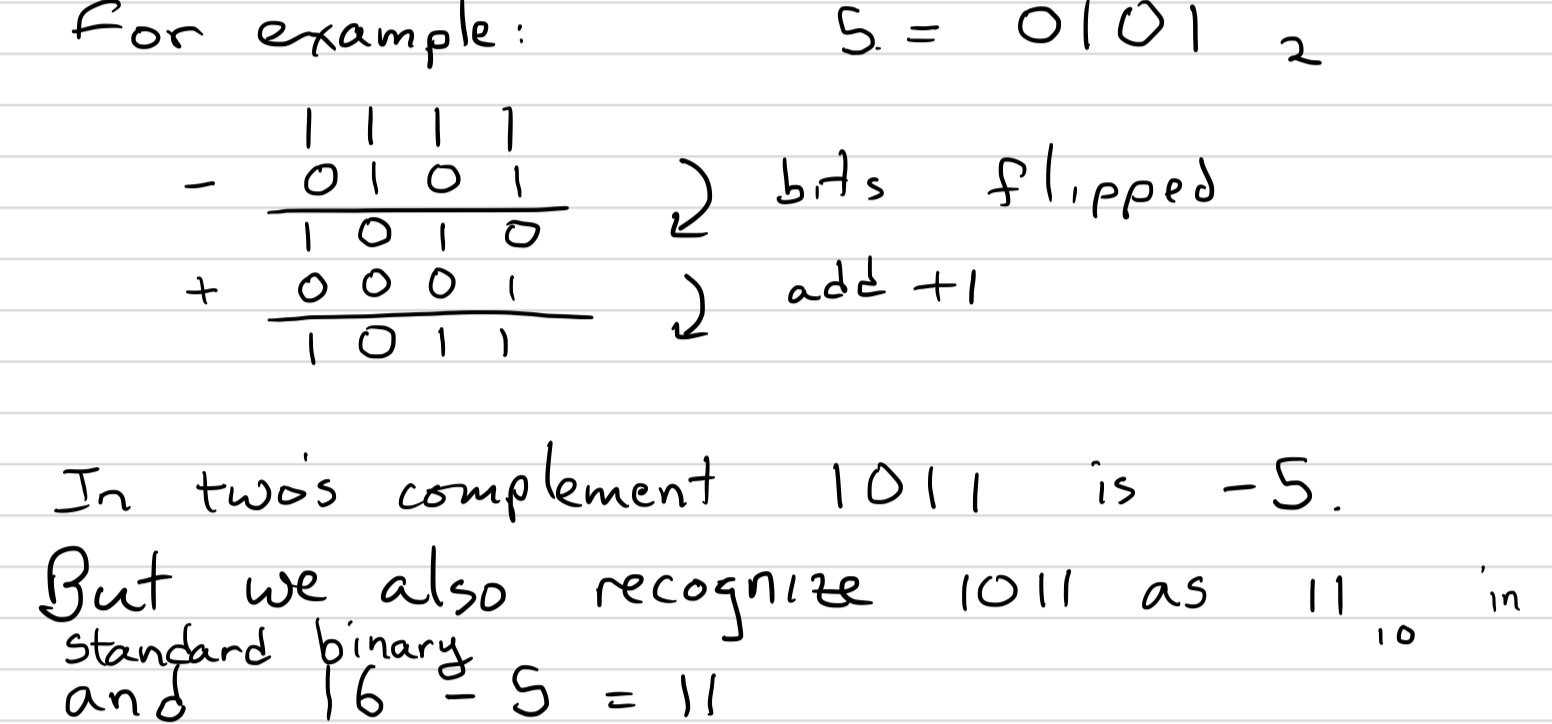 For example: 5. = 0101 2
1 1 1 1
- 0 1 0 1 bits flipped
1 0 1 0
+ 0 0 0 1 add +1
1 0 1 1
In two's complement 1011 is -5.
But we also recognize 1011 as 11 10 in
standard binary
and 16 - 5 = 11